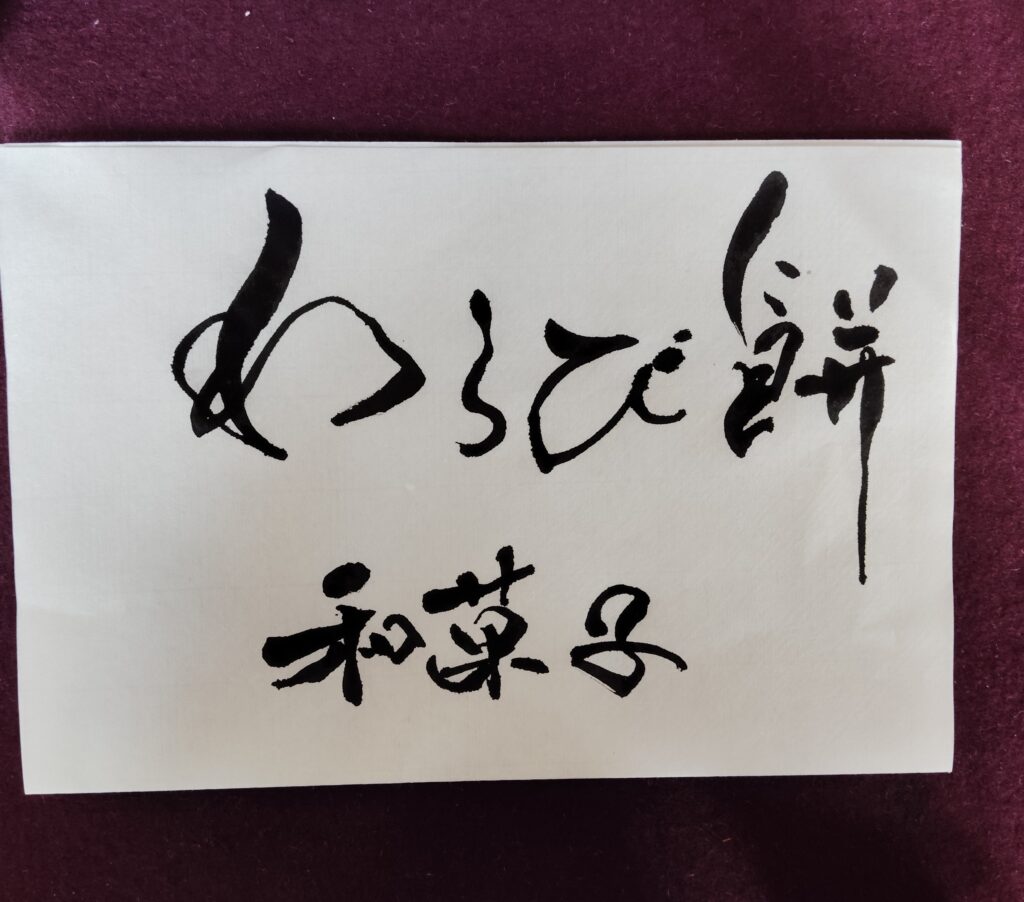 わらび餅
和菓子